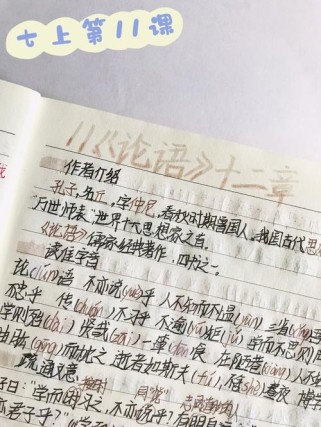 七上第11课
11《论语》十二章
作者介绍
孔子,名丘,字仲尼,春秋时期鲁国人,我国古代思
"万世师表"世界十大思想家之首。
《论语》儒家经典著作,四书之一。
读准字音
论(lún)语 不亦说(yuè)乎 人不知而不愠(yùn) 三省(xǐng)
惑乎 传(chuán)不习乎 不逾(yú)矩(jǔ) 学而不思则
学则殆(dài) 好哉(zāi) 一箪(dān)食 在陋巷(xiàng) 人不
曲肱(gōng)而枕之 逝者如斯夫(fú),不舍(shě)昼夜 博学
疏通文意
子曰:"学而时习之,不亦说乎?有朋自
同"悦"
亦君子乎?"